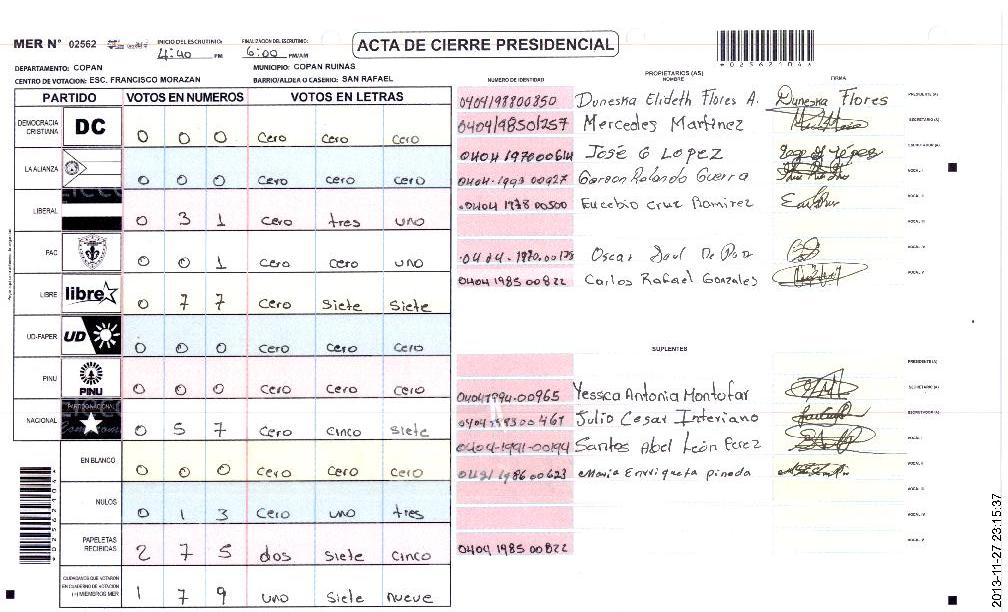 MER N° 02562
INICIO DEL ESCRUTINIO: 4:40 PM
FINALIZACION DEL ESCRUTINIO: 6:00 PM/AM
ACTA DE CIERRE PRESIDENCIAL
DEPARTAMENTO: COPAN
MUNICIPIO: COPAN RUINAS
CENTRO DE VOTACION: ESC. FRANCISCO MORAZAN
BARRIO/ALDEA O CASERIO: SAN RAFAEL
PARTIDO VOTOS EN NUMEROS VOTOS EN LETRAS
DEMOCRACIA CRISTIANA DC 0 0 0 Cero Cero Cero
LA ALIANZA 0 0 0 Cero Cero Cero
LIBERAL 0 3 1 Cero tres uno
PAC 0 0 1 Cero Cero uno
LIBRE libre 0 7 7 Cero Siete Siete
UD-FAPER UD 0 0 0 Cero Cero Cero
PINU PINU 0 0 0 Cero Cero Cero
NACIONAL 0 5 7 Cero Cinco Siete
EN BLANCO 0 0 0 Cero Cero Cero
NULOS 0 1 3 Cero uno tres
PAPELETAS RECIBIDAS 2 7 5 dos Siete Cinco
CIUDADANOS QUE VOTARON EN CUADERNO DE VOTACION (+) MIEMBROS MER 1 7 9 uno Siete nueve
NUMERO DE IDENTIDAD
PROPIETARIOS (AS)
NOMBRE
FIRMA
0404198800850 Duneska Elideth Flores A. Duneska Flores PRESIDENTE (A)
0404/9850/257 Mercedes Martinez SECRETARIO (A)
0404 197000614 José G Lopez ESCRUTADOR (A)
0404-1993 00927 Gerson Rolando Guerra VOCAL I
0404 1978 00500 Eucebio Cruz Ramirez VOCAL II
VOCAL III
Oscar Saul De Paz VOCAL IV
0404 1985 00822 Carlos Rafael Gonzales VOCAL V
SUPLENTES
PRESIDENTE (A)
04041994-00965 Yessica Antonia Montofar SECRETARIO (A)
Julio Cesar Interiano ESCRUTADOR (A)
0404-1991-00194 Santos Abel León Perez VOCAL I
0421 1986 00623 Maria Enrriqueta pineda VOCAL II
VOCAL III
VOCAL IV
0404 1985 00822 VOCAL V
2013-11-27 23:15:37